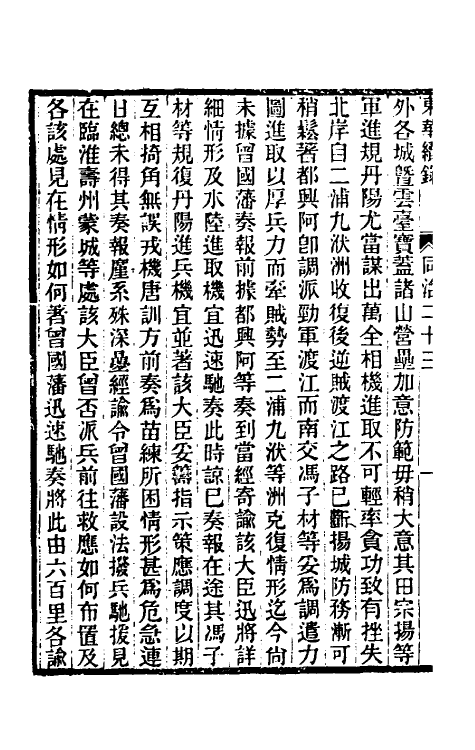 東華續錄 同治二十三 一
外各城暨雲臺寶蓋諸山營壘加意防範毋稍大意其田宗揚等
軍進規丹陽尤當謀出萬全相機進取不可輕率貪功致有挫失
北岸自二浦九洑洲收復後逆賊渡江之路已斷揚城防務漸可
稍鬆著都興阿卽調派勁軍渡江而南交馮子材等妥爲調遣力
圖進取以厚兵力而牽賊勢至二浦九洑等洲克復情形迄今尙
未據曾國藩奏報前據都興阿等奏到當經寄諭該大臣迅將詳
細情形及水陸進取機宜迅速馳奏此時諒已奏報在途其馮子
材等規復丹陽進兵機宜並著該大臣妥籌指示策應調度以期
互相掎角無誤戎機唐訓方前奏爲苗練所困情形甚爲危急連
日總未得其奏報廑系殊深疊經諭令曾國藩設法撥兵馳援見
在臨淮壽州蒙城等處該大臣曾否派兵前往救應如何布置及
各該處見在情形如何著曾國藩迅速馳奏將此由六百里各諭